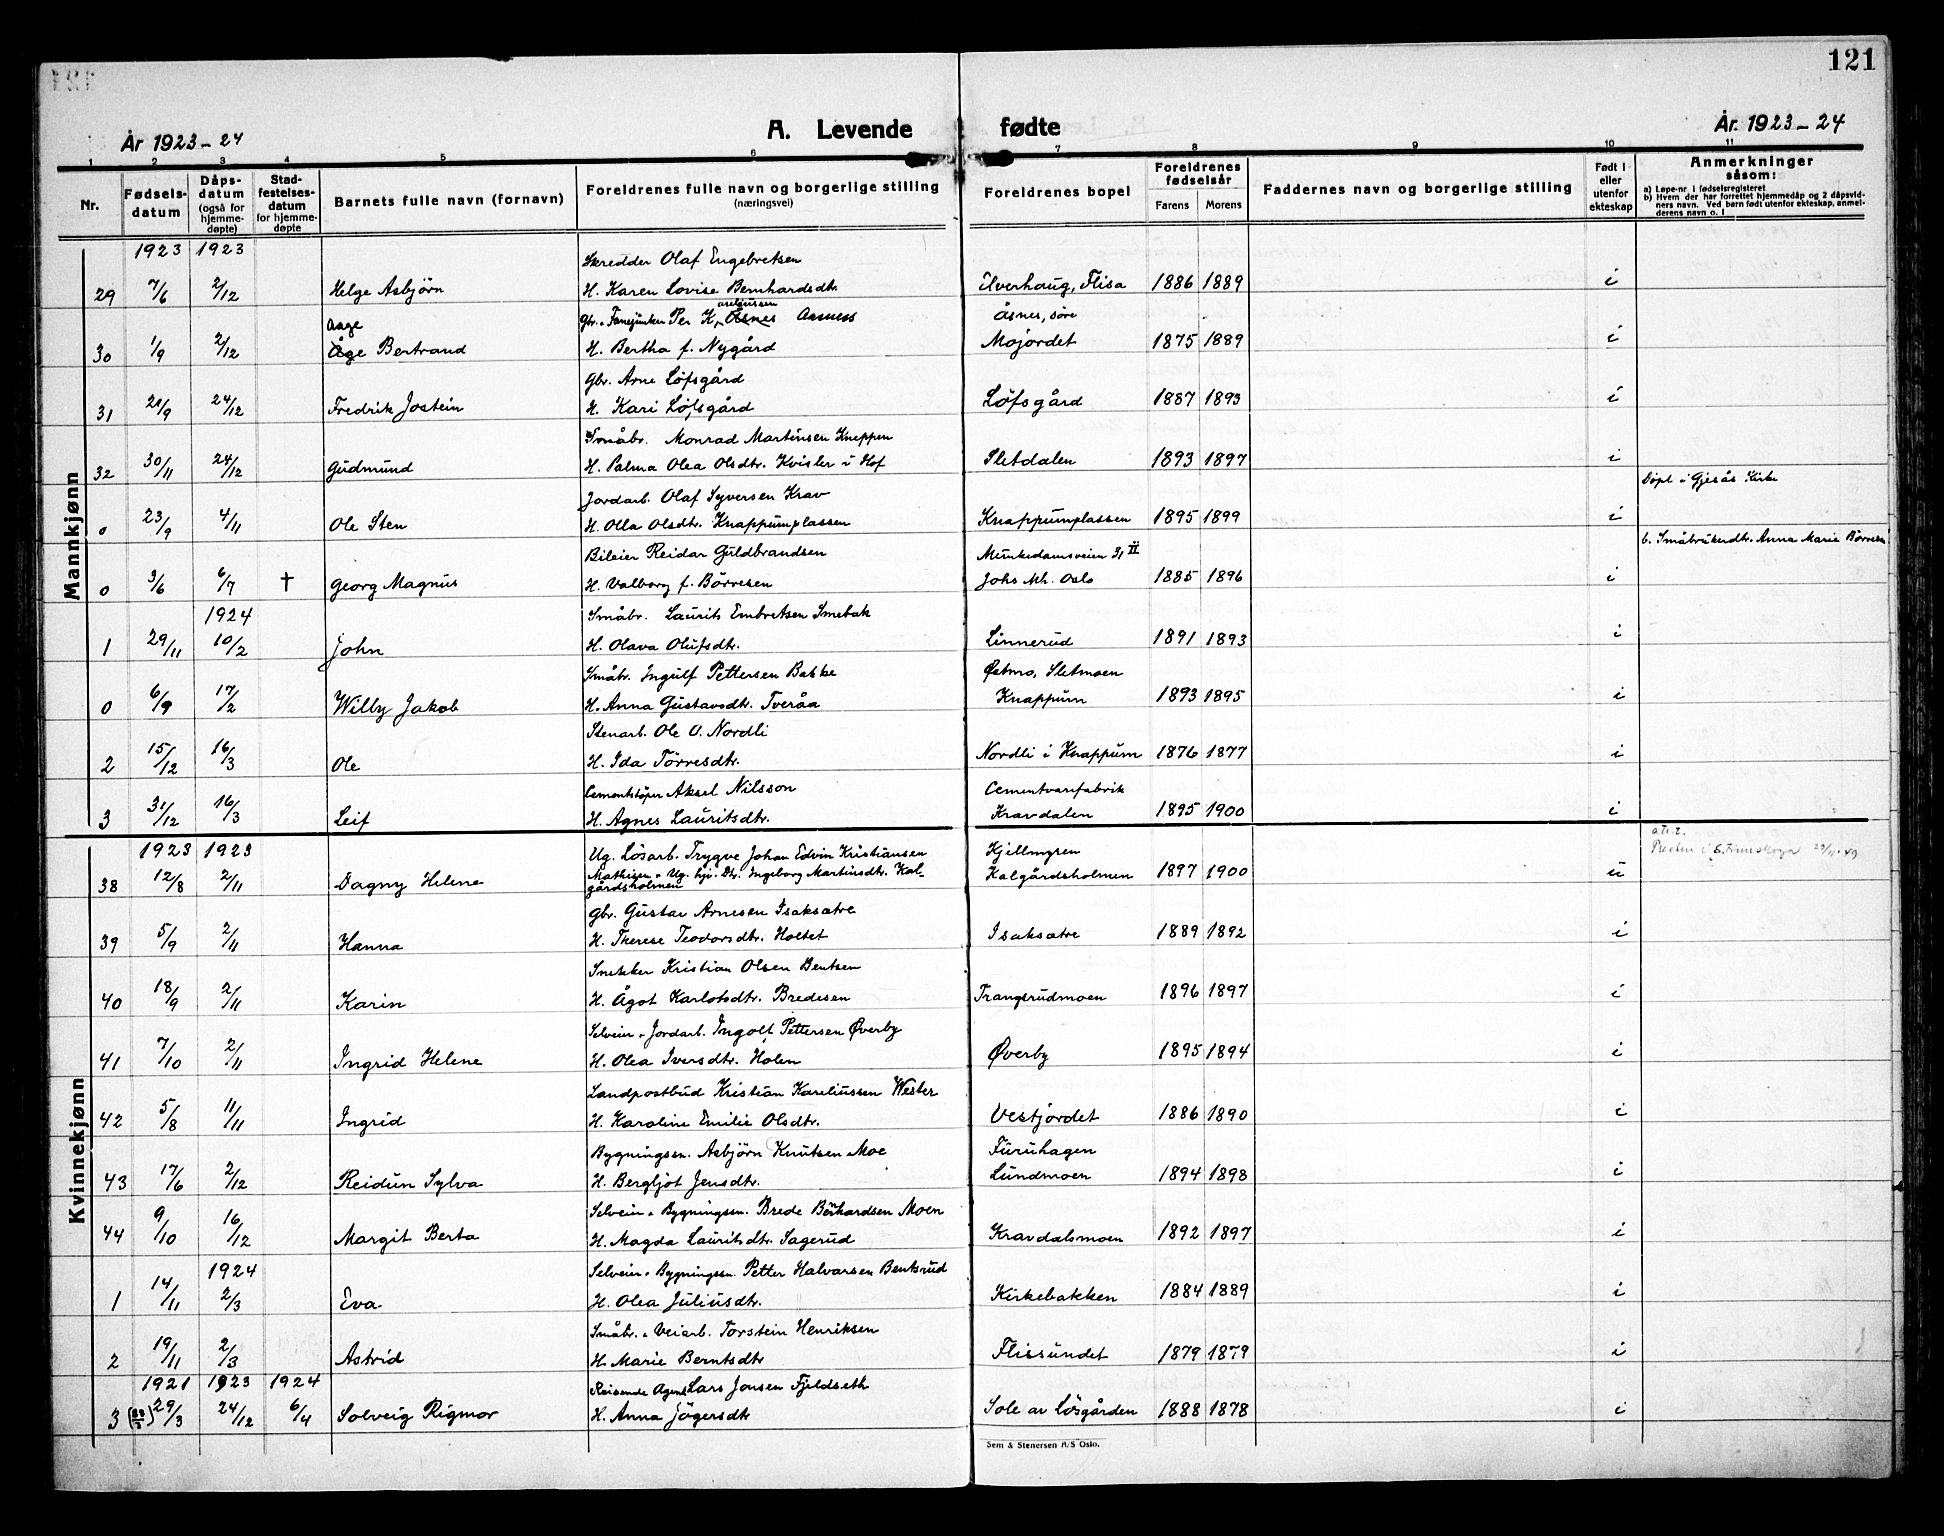 121
År 1923-24
A. Levende fødte
År. 1923-24
1 2 3 4 5 6 7 8 9 10 11
Nr.
Fødsels-
datum
Dåps-
datum
(også for
hjemme-
døpte)
Stad-
festelses-
datum
for hjemme-
døpte
Barnets fulle navn (fornavn)
Foreldrenes fulle navn og borgerlige stilling
(næringsvei)
Foreldrenes bopel
Foreldrenes
fødselsår
Farens Morens
Faddernes navn og borgerlige stilling
Født i
eller
utenfor
ekteskap
Anmerkninger
såsom:
a) Løpe-nr. i fødselsregisteret
b) Hvem der har forrettet hjemmedåp og 2 dåpsvid-
ners navn. Ved barn født utenfor ekteskap, anmel-
derens navn o. l
Mannkjønn
1923 1923
Skredder Olaf Engebretsen
29 7/6 2/12 Helge Asbjörn H. Karen Lovise Bernhardsdtr. Elverhaug, Flisa 1886 1889 i
Aage Gbr. Fanejunker Per K. Åsnes Aasnes Åsnes, söre
30 1/9 2/12 Åge Bertrand H. Bertha f. Nygård Mojordet 1875 1889 i
Gbr. Arne Löfsgård
31 21/9 24/12 Fredrik Jostein H. Kari Löfsgård Löfsgård 1887 1893 i
Småbr. Monrad Martinsen Knappen
32 30/11 24/12 Gudmund H. Palma Olea Olsdtr. Kvisler i Hof Sletdalen 1893 1897 i
Jordarb. Olaf Syversen Krav Döpt i Gjesås Kirke
0 23/9 4/11 Ole Sten H. Olla Olsdtr. Knappumplassen Knappumplassen 1895 1899 i
Bileier Reidar Guldbrandsen Munkedamsveien 31 II b. Småbrukerdtr. Anna Marie Börresen
0 3/6 6/7 † Georg Magnus H. Valborg f. Börresen Johs Mh. Oslo 1885 1896 i
1924 Småbr. Laurits Embretsen Smebak
1 29/11 10/2 John H. Olava Olufsdtr. Linnerud 1891 1893 i
Småbr. Ingulf Pettersen Bakke Østmo, Sletmoen
0 6/9 17/2 Willy Jakob H. Anna Gustavsdtr. Tveråa Knappum 1893 1895 i
Stenarb. Ole O. Nordli
2 15/12 16/3 Ole H. Ida Törresdtr. Nordli i Knappum 1876 1877 i
Cementstöper Aksel Nilsson Cementvarefabrik
3 31/12 16/3 Leif H. Agnes Lauritsdtr. Kravdalen 1895 1900 i
Kvinnekjønn
1923 1923 Ug. Lösarb. Trygve Johan Edvin Kristiansen Kjellmyren
38 12/8 2/11 Dagny Helene Mathisen Ug. hji. Dtr. Ingeborg Martinsdtr. Kal-
gårdsholmen Kalgårdsholmen 1897 1900 u
Gbr. Gustav Arnesen Isaksætre
39 5/9 2/11 Hanna H. Therese Teodorsdtr. Holtet Isaksætre 1889 1892 i
Snekker Kristian Olsen Bentsen
40 18/9 2/11 Karin H. Ågot Karlotsdtr. Bredesen Trangsrudmoen 1896 1897 i
Selveier, Jordarb. Ingolf Pettersen Øverby
41 7/10 2/11 Ingrid Helene H. Olea Iversdtr. Holen Øverby 1895 1894 i
Landpostbud Kristian Kareliussen Wester
42 5/8 11/11 Ingrid H. Karoline Emilie Olsdtr. Vestjordet 1886 1890 i
Bygningssn. Asbjörn Knutsen Moe Furuhagen
43 17/6 2/12 Reidun Sylva H. Bergljot Jensdtr. Lundmoen 1894 1898 i
Selveier, Bygningssn. Brede Bernhardsen Moen
44 9/10 16/12 Margit Berta H. Magda Lauritsdtr. Sagerud Kravdalsmoen 1892 1897 i
1924 Selveier, Bygningssn. Petter Halvarsen Bentsrud
1 14/11 2/3 Eva H. Olea Juliusdtr. Kirkebakken 1884 1889 i
Småbr., Veiarb. Torstein Henriksen
2 19/11 2/3 Astrid H. Marie Berntsdtr Flissundet 1879 1879 i
1921 1923 1924 Reisende Agent Lars Jonsen Fjeldseth
3 29/3 24/12 6/4 Solveig Rigmor H. Anna Jögersdtr Sole av Lösgården 1888 1878 i
Sem & Stenersen A/S Oslo.